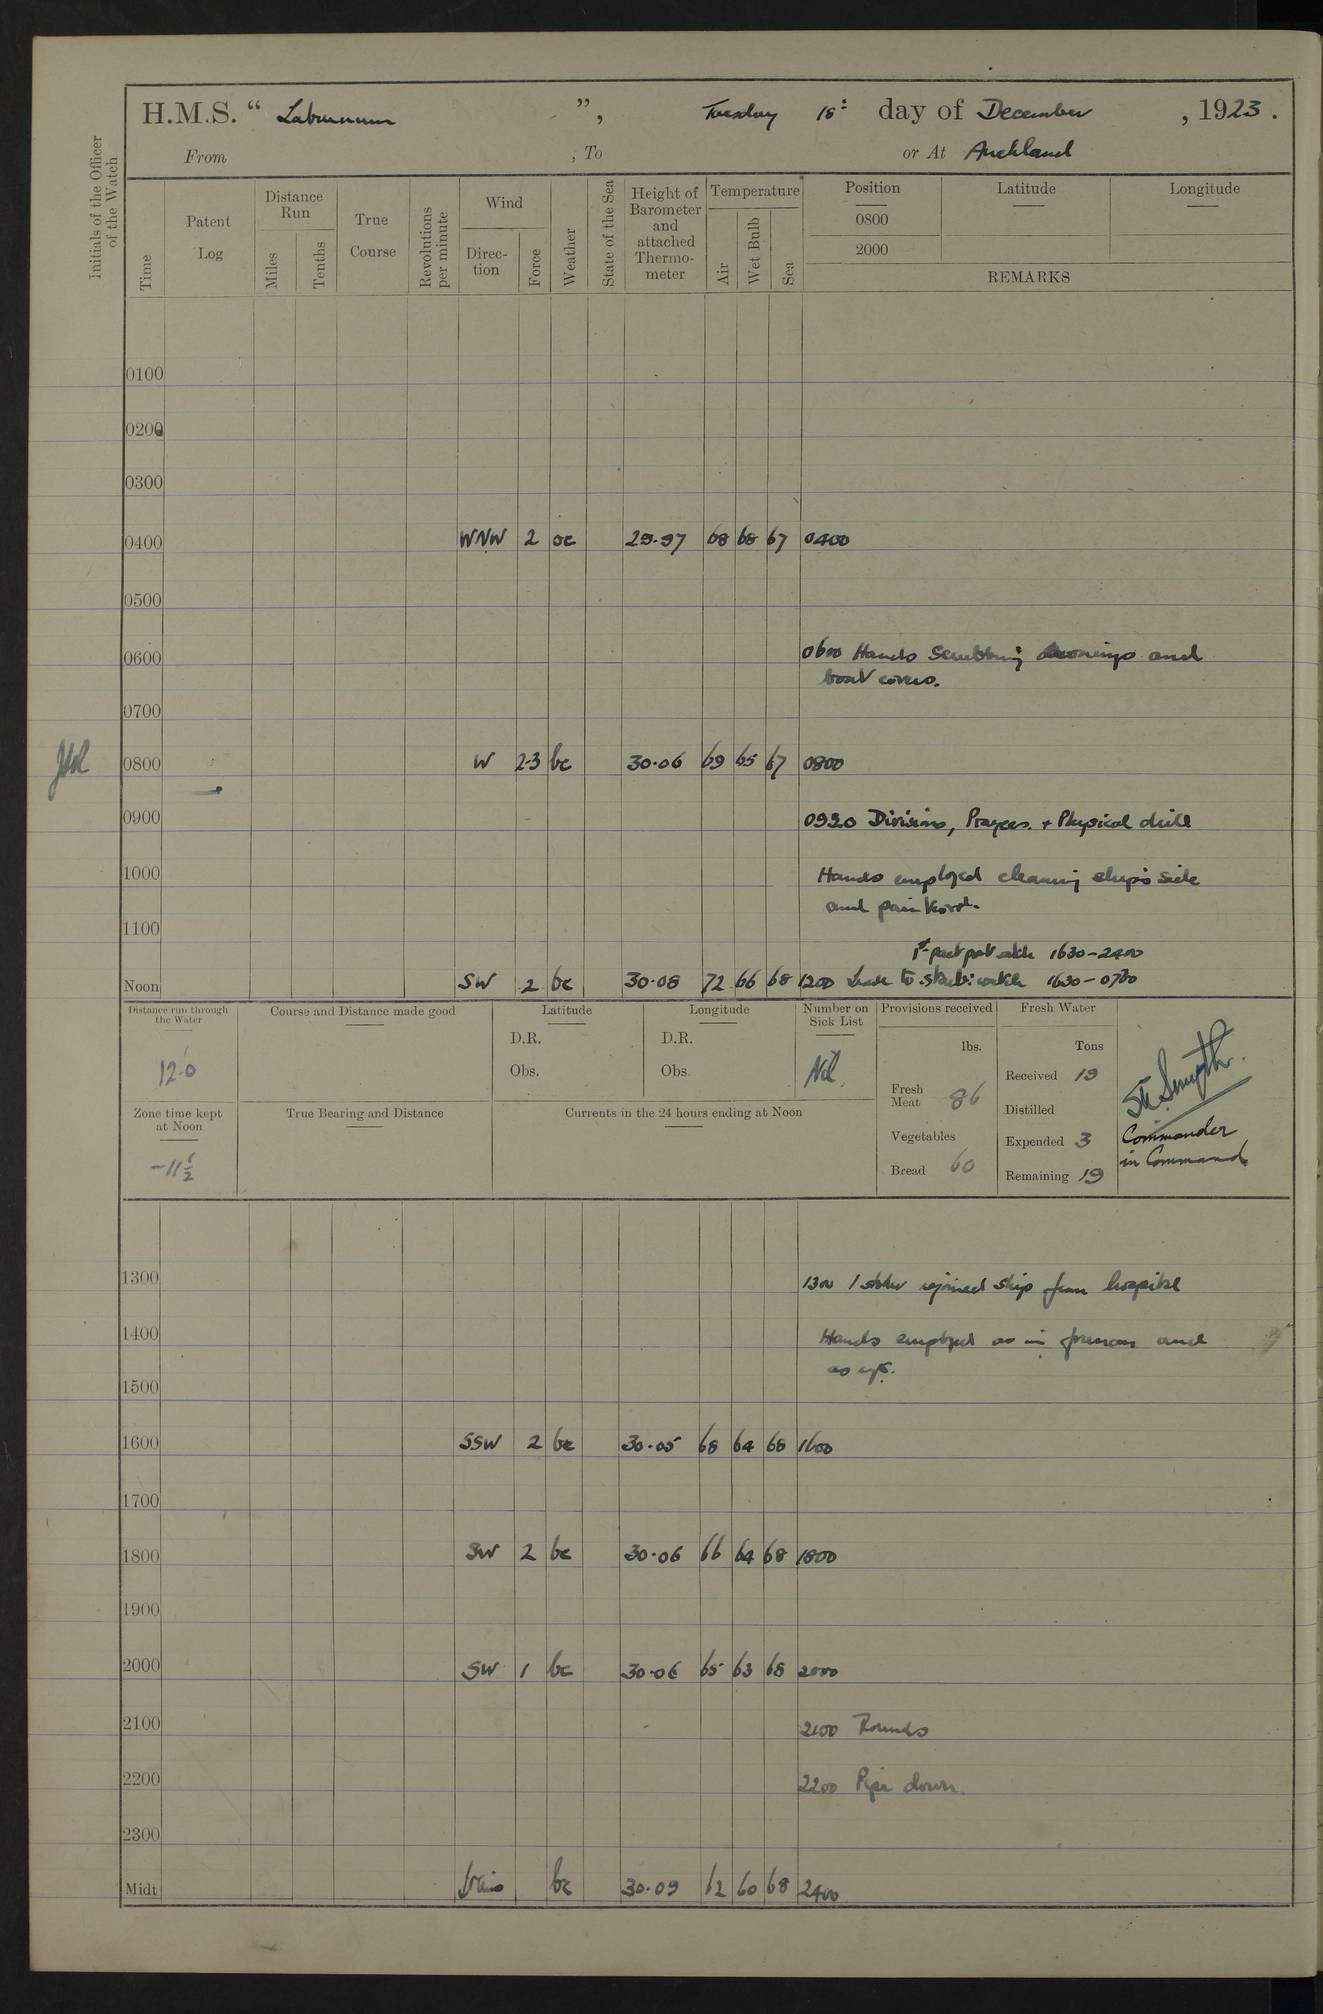 H.M.S. “ Laburnum ”, Tuesday 18th day of December , 1923.
From , To or At Auckland
Initials of the Officer of the Watch
Time
Patent Log
Distance Run
Miles
Tenths
True Course
Revolutions per minute
Wind
Direc-tion
Force
Weather
State of the Sea
Height of Barometer and attached Thermo-meter
Temperature
Air
Wet Bulb
Sea
Position
Latitude
Longitude
0800
2000
REMARKS
0100
0200
0300
0400 WNW 2 oc 29.97 68 68 67 0400
0500
0600 0600 Hands Scrubbing awnings and
boat covers.
0700
0800 W 2-3 bc 30.06 69 65 67 0800
0900 0920 Divisions, Prayers. + Physical drill
1000 Hands employed cleaning ship's side
and paintwork.
1100
1st part port watch 1630-2400
Noon SW 2 bc 30.08 72 66 68 1200 Leave to Starb: watch 1630-0700
Distance run through the Water
12.0
Zone time kept at Noon
-11½
Course and Distance made good
True Bearing and Distance
Latitude
D.R.
Obs.
Longitude
D.R.
Obs.
Currents in the 24 hours ending at Noon
Number on Sick List
Nil.
Provisions received
lbs.
Fresh Meat 86
Vegetables
Bread 60
Fresh Water
Tons
Received 19
Distilled
Expended 3
Remaining 19
Smyth.
Commander
in Command
1300 1300 1 stoker rejoined ship from hospital
1400 Hands employed as in forenoon and
as req.
1500
1600 SSW 2 bc 30.05 68 64 68 1600
1700
1800 SW 2 bc 30.06 66 64 68 1800
1900
2000 SW 1 bc 30.06 65 63 68 2000
2100 2100 Rounds
2200 2200 Pipe down.
2300
Midt bc 30.09 62 60 68 2400